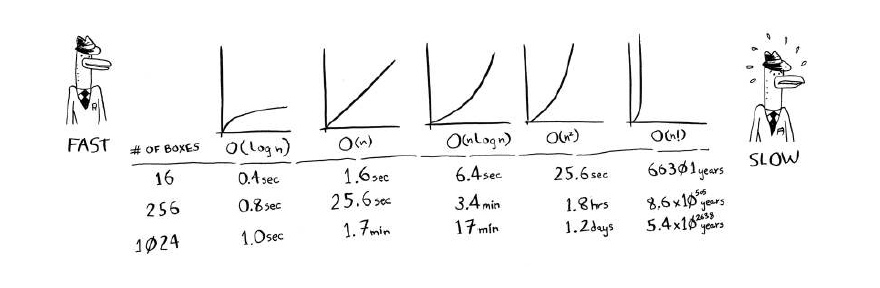 FAST
# OF BOXES O(logn) O(n) O(nlogn) O(n²) O(n!)
SLOW
16 0.4sec 1.6sec 6.4sec 25.6sec 66301years
256 0.8sec 25.6sec 3.4min 1.8hrs 8.6x10⁵⁰⁵years
1024 1.0sec 1.7min 17min 1.2days 5.4x10²⁶³⁸years